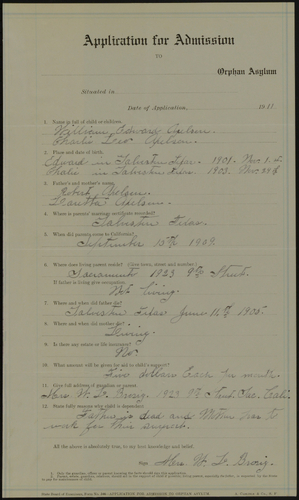 Application for Admission
TO
Orphan Asylum
Situated in
Date of Application, 191
1. Name in full of child or children.
William Edward
Charlie Leo
2. Place and date of birth.
Edward in Galveston Texas. 1901. Nov
Charlie in Galveston Texas. 1903. Nov
3. Father's and mother's name.
Robert
4. Where is parents' marriage certificate recorded?
Galveston Texas.
5. When did parents come to California?
September 15th 1909.
6. Where does living parent reside? (Give town, street and number.)
Sacramento 1923 9th Street.
If father is living give occupation.
Not living
7. Where and when did father die?
Galveston Texas June 16th 1905.
8. Where and when did mother die?
Living.
9. Is there any estate or life insurance?
No.
10. What amount will be given for aid to child's support?
Five dollars Each per month.
11. Give full address of guardian or parent.
Mrs. W. H. 1923 9th Street. Sac. Cal.
12. State fully reasons why child is dependent.
Father is dead and Mother has to
work for their support.
All the above is absolutely true, to my best knowledge and belief.
Sign Mrs. W. H.